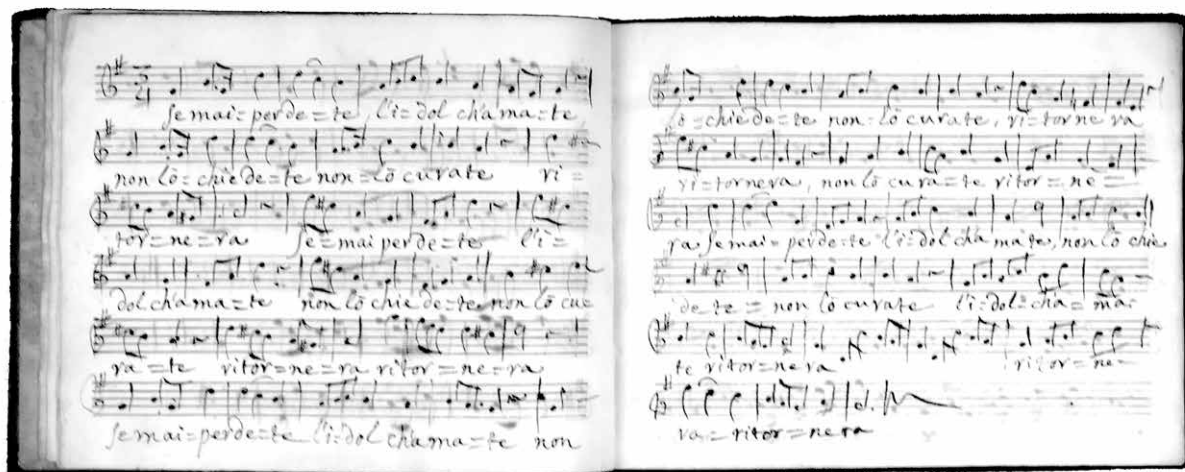 se mai = perde = te l'i = dol ch'a ma = te
non lō = chiede = te non = lō curate ri =
tor = ne = ra se = mai perde = te l'i =
dol ch'ama = te non lō chie de = te non lō cu
ra = te ritor = ne = ra ritor = ne = ra
se mai = perde = te l'i = dol ch'a ma = te non
lō = chiede = te non = lō curate, ri = tor ne ra
ri = tornera, non lō cu ra = te ritor = ne =
ra se mai = perde = te l'i = dol ch'a ma te, non lō chie
de te = non lō curate l'i = dol = ch'a = ma =
te ritor = ne ra ritor = ne =
ra = ritor = ne ra